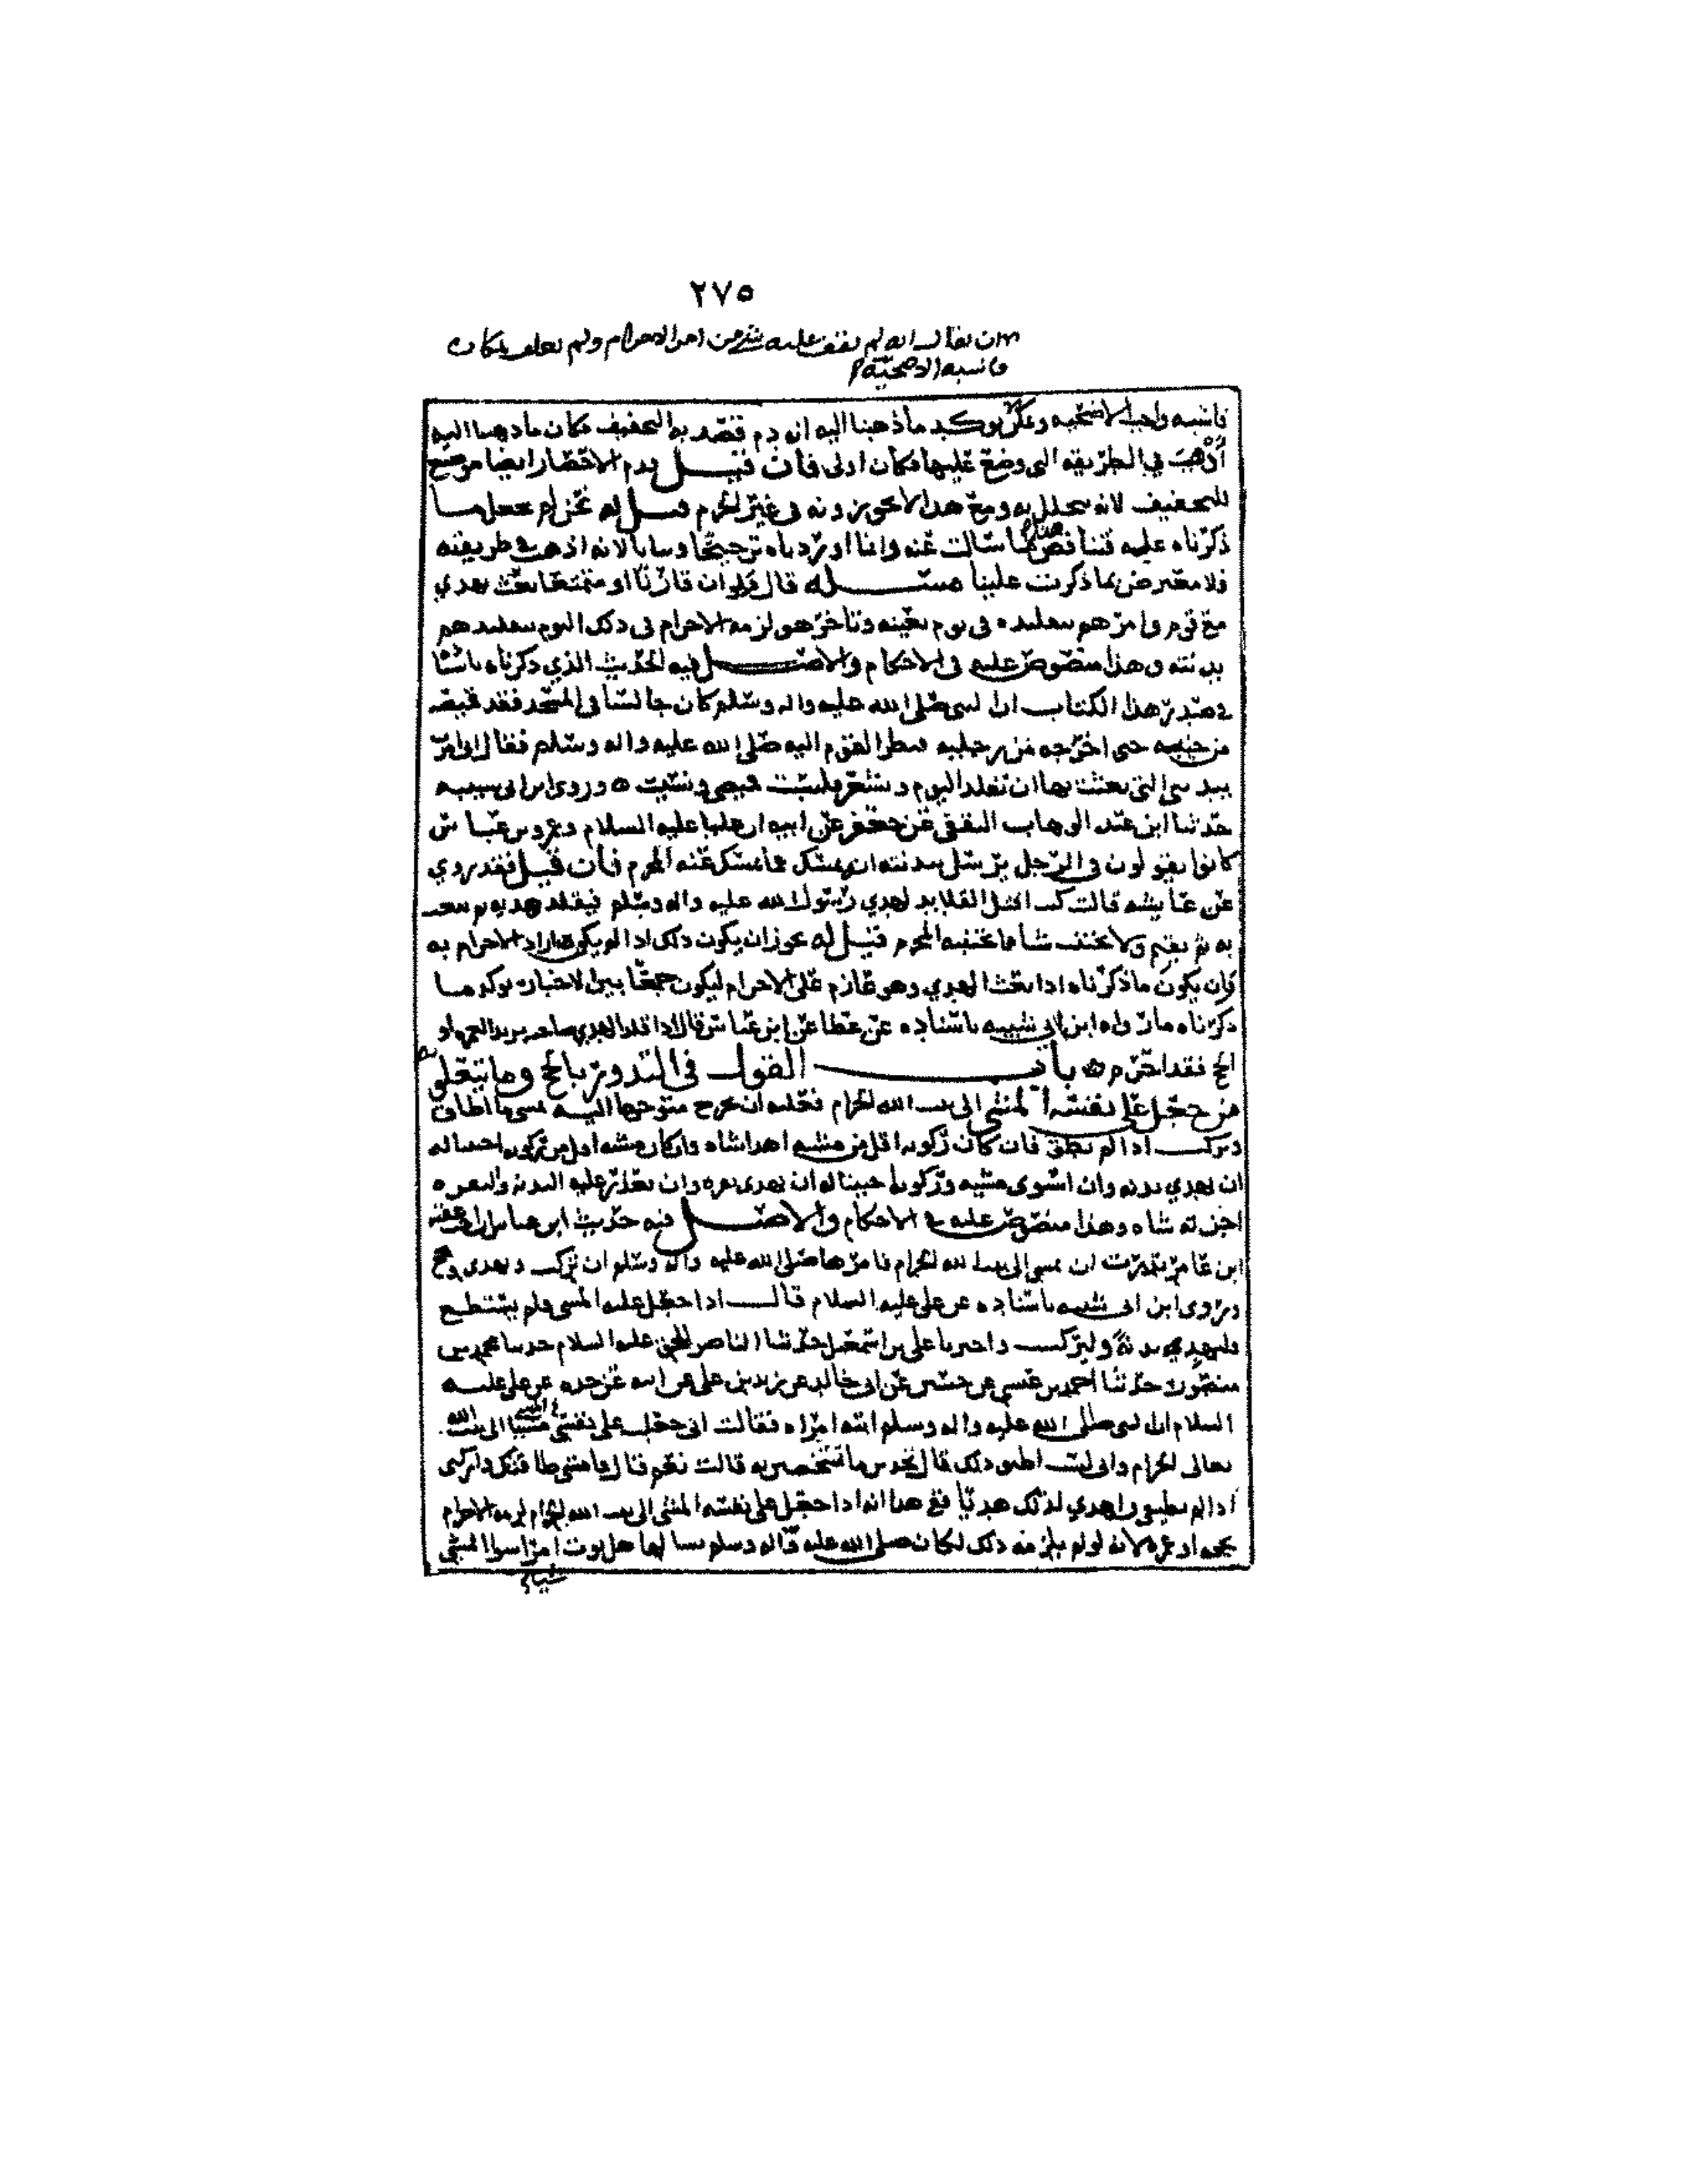 ٢٧٥
ان يقال انه لم يقف عليه شي من امر الاحرام ولم يعلق بمكان
فاشبه الاضحية
فاشبه واجب الاضحيه ويمكن يوكد ما ذهبنا اليه انه دم قصد به التخفيف فكان ما ذهبنا اليه
أذهب في الطريقه التي وضع عليها فكان اولى فان قيل ودم الاحصار ايضا موضع
للتخفيف لانه يتحلل به ومع هذا لا تجوزونه في غير الحرم قيل له نحن لم نجعل ما
ذكرناه عليه فتناقض بما سالت عنه وانما اوردناه ترجيحا وبيانا لانه اذهب في طريقته
فلا معترض بما ذكرت علينا مسئله قال ولو ان قارنا او متمتعا بعث بهدي
مع قوم وامرهم بتقليده في يوم بعينه وتاخر هو لزمه الاحرام في ذلك اليوم بتقليدهم
بدنته وهذا منصوص عليه في الاحكام والاصل فيه الحديث الذي ذكرناه باسناده
في صدر هذا الكتاب ان النبي صلى الله عليه واله وسلم كان جالسا في المسجد فقد قميصه
من جيبه حتى اخرجه من رجليه فنظر القوم اليه صلى الله عليه واله وسلم فقال اني امرت
ببدني التي بعثت بها ان تقلد اليوم وتشعر فلبست قميصي ونسيت ه وروى ابن ابي شيبه
حدثنا ابن عبد الوهاب الثقفي عن جعفر عن ابيه ان عليا عليه السلام وعمر وبن عباس
كانوا يقولون في الرجل يرسل ببدنته انه يمسك عما يمسك عنه المحرم فان قيل فقد روي
عن عايشه قالت كنت افتل القلايد لهدي رسول الله عليه واله وسلم فيقلد هديه ثم يبعث
به ثم يقيم ولا يجتنب شيا مما يجتنبه المحرم قيل له يجوز ان يكون ذلك اذا لم يكن اراد الاحرام به
وان يكون ما ذكرناه اذا بعث الهدي وهو عازم على الاحرام ليكون جمعا بين الاخبار يوكد ما
ذكرناه ما رواه ابن ابي شيبه باسناده عن عطا عن ابن عباس قال اذا قلد الهدي صاحبه يريد العمره او
الحج فقد احرم ه باب القول في النذور بالحج وما يتعلق به
من جعل على نفسه المشي الى بيت الله الحرام فعليه ان يخرج متوجها اليه يمشي ما اطاق
ويركب اذا لم يطق فان كان ركوبه اقل من مشيه اهدا شاه وان كان مشيه اقل من ركوبه احببنا له
ان يهدي بدنه وان استوى مشيه وركوبه احببنا له ان يهدي بقره وان تعذر عليه البدنه والبقره
اجزته شاه وهذا منصوص عليه في الاحكام والاصل فيه حديث ابن عباس ان اخت عقبه
ابن عامر نذرت ان تمشي الى بيت الله الحرام فامرها صلى الله عليه واله وسلم ان تركب وتهدي
وروى ابن ابي شيبه باسناده عن علي عليه السلام قال اذا جعل عليه المشي ولم يستطع
فليهدي بدنة وليركب واخبرنا علي بن اسمعيل حدثنا الناصر للحق عليه السلام حدثنا محمد بن
منصور حدثنا احمد بن عيسى عن حسين عن ابي خالد عن زيد بن علي عن ابيه عن جده عن علي عليه
السلام ان النبي صلى الله عليه واله وسلم اتته امراه فقالت اني جعلت على نفسي مشيا الى بيت الله
تعالى الحرام واني لست اطيق ذلك قال تجدين ما تشخصين به قالت نعم قال فامشي طاقتك واركبي
اذا لم تطيقي واهدي لذلك هديا فع هذا انه اذا جعل على نفسه المشي الى بيت الله الحرام لزمه الاحرام
بحجه او عمره لانه لو لم يلزمه ذلك لكان صلى الله عليه واله وسلم يسالها هل نوت امرا سوا المشي
شيام